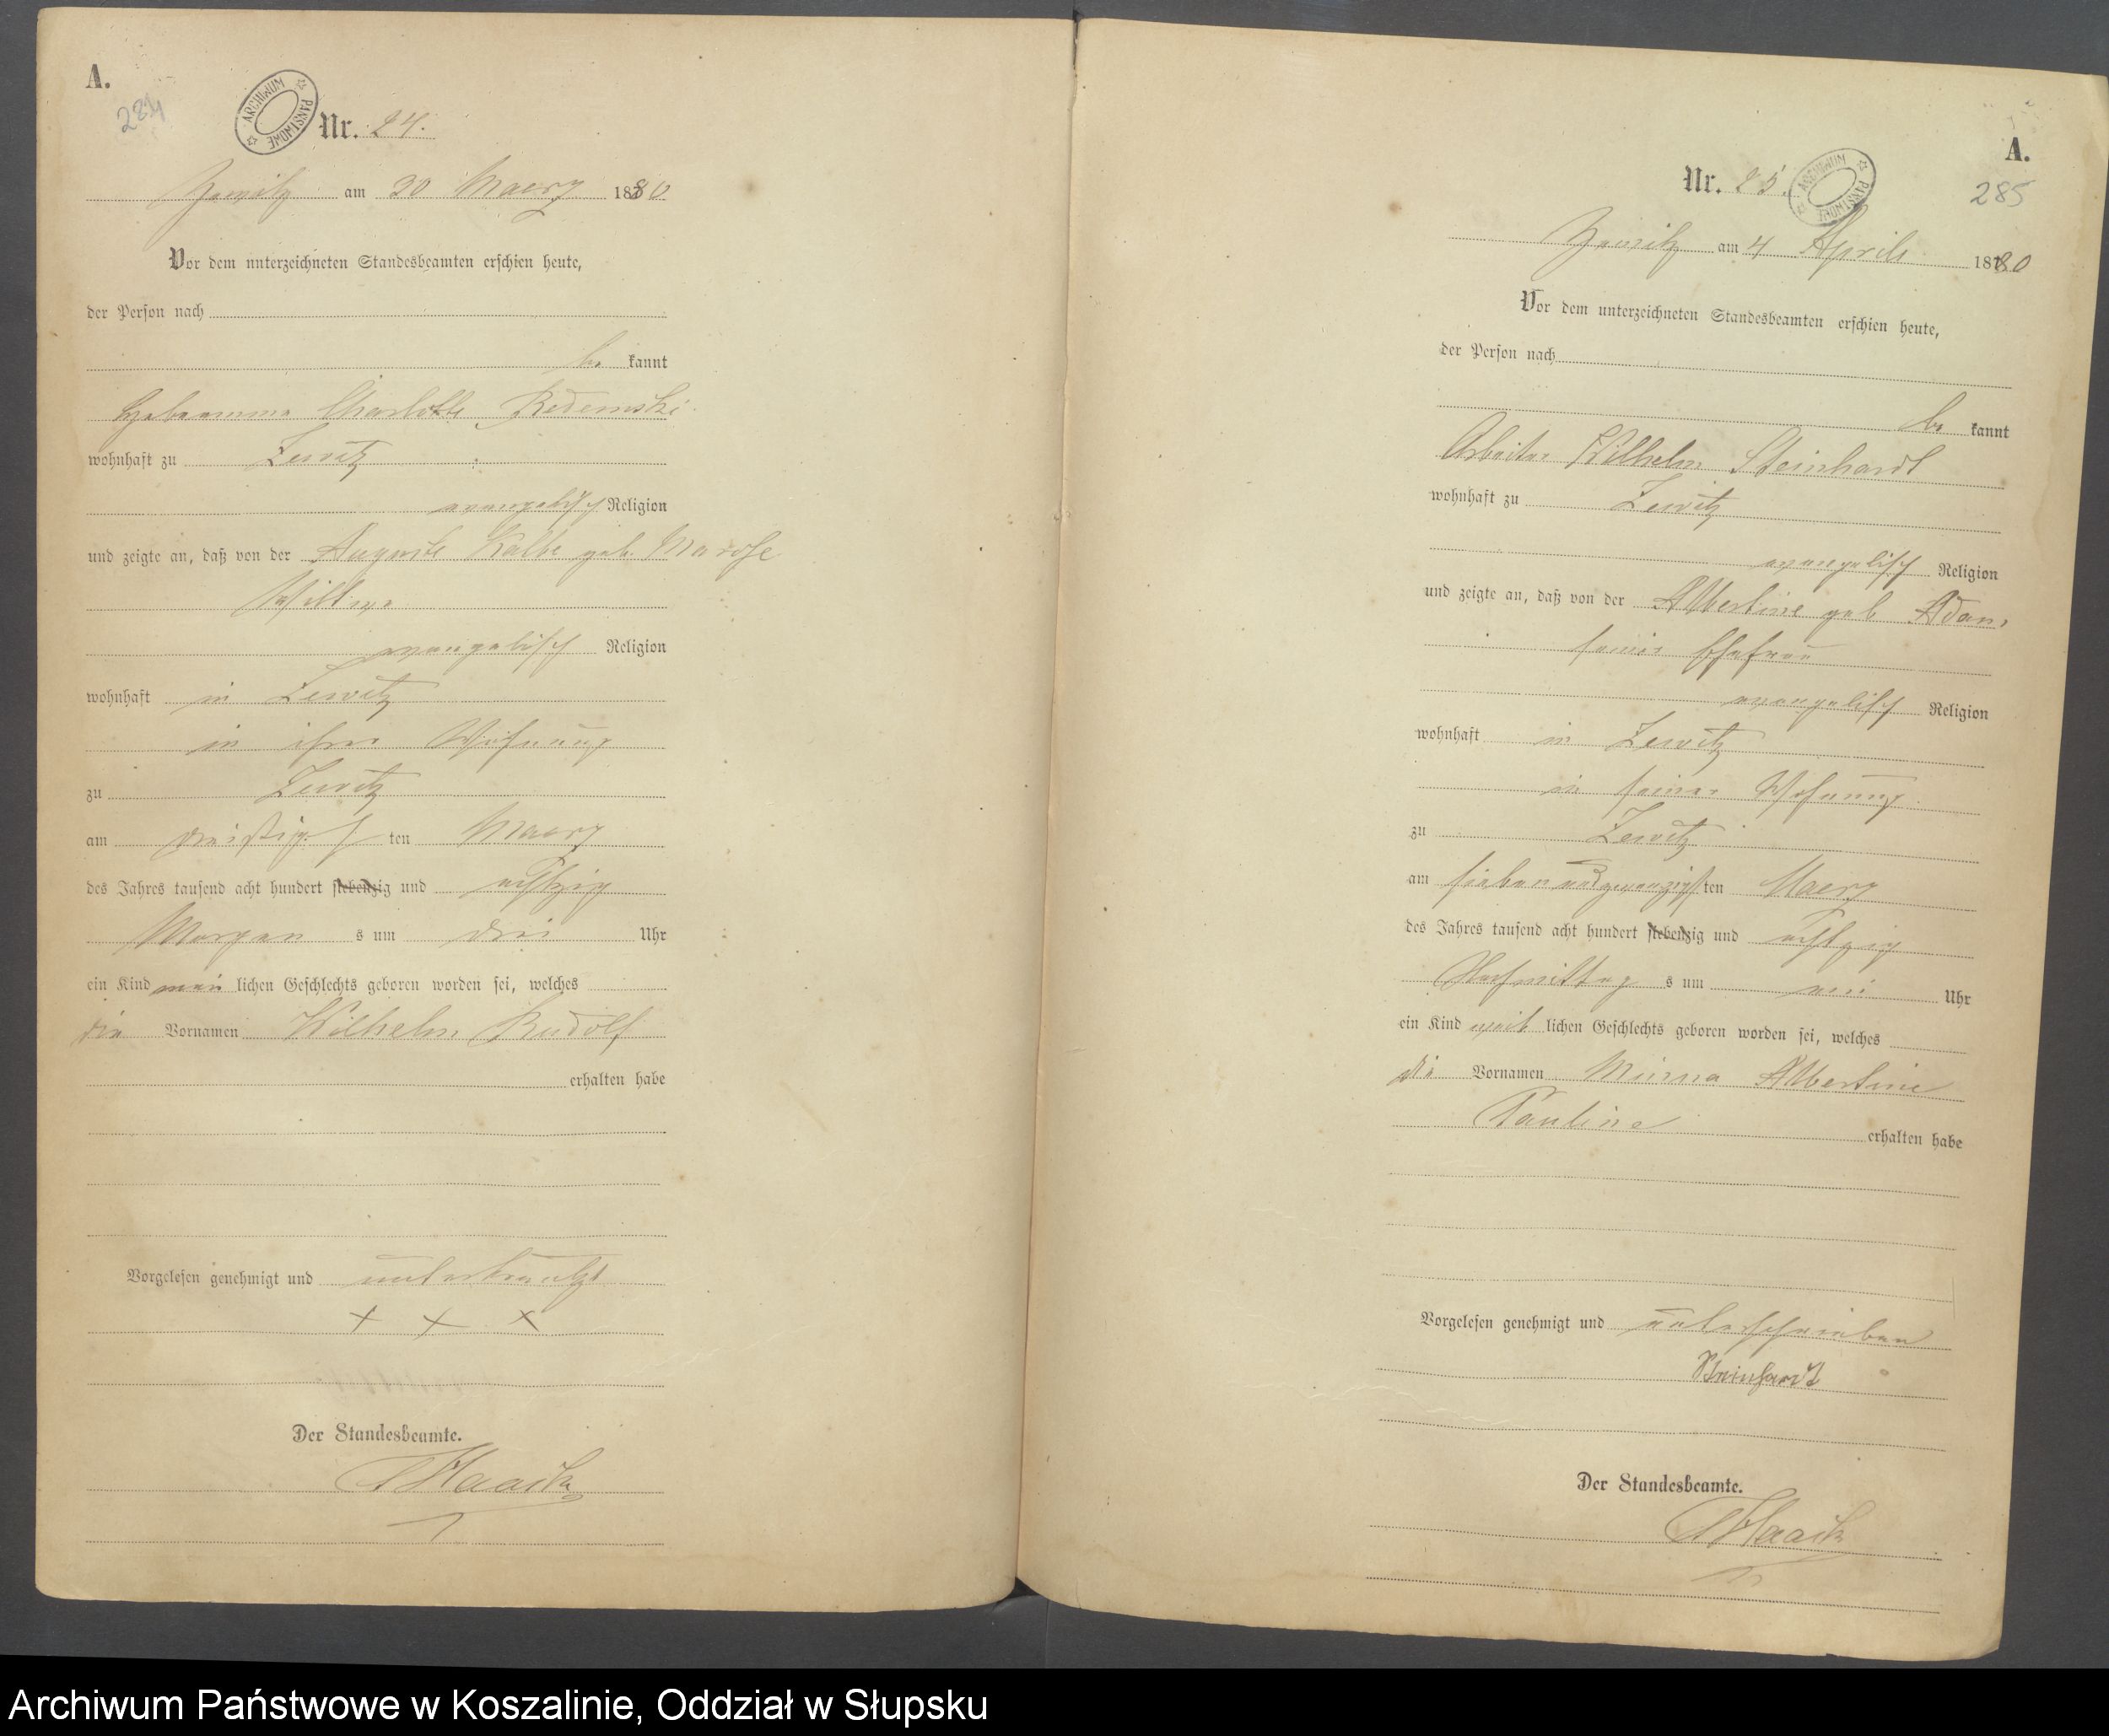 A.
284
ARCHIWUM PAŃSTWOWE
Nr. 24.
Zewitz am 30 Maerz 1880
Vor dem unterzeichneten Standesbeamten erschien heute,
der Person nach
be kannt
Hebamme Charlotte Redemski
wohnhaft zu Zewitz
evangelisch Religion
und zeigte an, daß von der Auguste Kalbe geb. Marose
Wittwe
evangelisch Religion
wohnhaft in Zewitz
in ihrer Wohnung
zu Zewitz
am dreisigs ten Maerz
des Jahres tausend acht hundert siebenzig und achtzig
Morgen s um drei Uhr
ein Kind män lichen Geschlechts geboren worden sei, welches
die Vornamen Wilhelm Rudolf
erhalten habe
Vorgelesen genehmigt und unterkreuzt
+ + x
Der Standesbeamte.
Haack
A.
285
Nr. 25.
ARCHIWUM PAŃSTWOWE
Zewitz am 4 Aprils 1880
Vor dem unterzeichneten Standesbeamten erschien heute,
der Person nach
be kannt
Arbeiter Wilhelm Steinhardt
wohnhaft zu Zewitz
evangelisch Religion
und zeigte an, daß von der Albertine geb Adam
seiner Ehefrau
evangelisch Religion
wohnhaft in Zewitz
in seiner Wohnung
zu Zewitz
am siebenundzwanzigsten Maerz
des Jahres tausend acht hundert siebenzig und achtzig
Nachmittag s um Uhr
ein Kind weib lichen Geschlechts geboren worden sei, welches
die Vornamen Minna Albertine
Pauline erhalten habe
Vorgelesen genehmigt und unterschrieben
Steinhardt
Der Standesbeamte.
Haack
Archiwum Państwowe w Koszalinie, Oddział w Słupsku